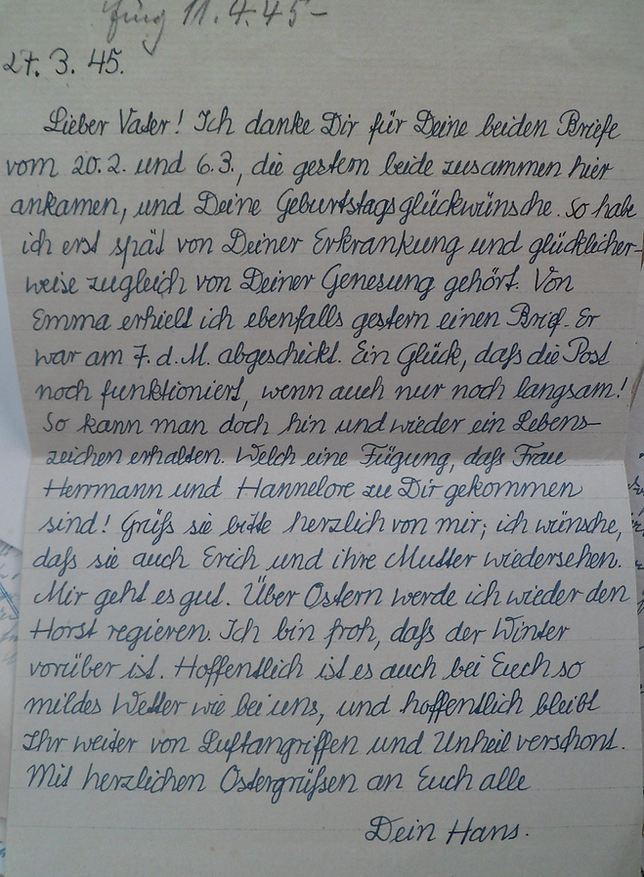 11.4.45-
27. 3. 45.
Lieber Vater! Ich danke Dir für Deine beiden Briefe
vom 20.2. und 6.3., die gestern beide zusammen hier
ankamen, und Deine Geburtstagsglückwünsche. So habe
ich erst spät von Deiner Erkrankung und glücklicher-
weise zugleich von Deiner Genesung gehört. Von
Emma erhielt ich ebenfalls gestern einen Brief. Er
war am 7. d. M. abgeschickt. Ein Glück, daß die Post
noch funktioniert, wenn auch nur noch langsam!
So kann man doch hin und wieder ein Lebens-
zeichen erhalten. Welch eine Fügung, daß Frau
Herrmann und Hannelore zu Dir gekommen
sind! Grüß sie bitte herzlich von mir; ich wünsche,
daß sie auch Erich und ihre Mutter wiedersehen.
Mir geht es gut. Über Ostern werde ich wieder den
Horst regieren. Ich bin froh, daß der Winter
vorüber ist. Hoffentlich ist es auch bei Euch so
mildes Wetter wie bei uns, und hoffentlich bleibt
Ihr weiter von Luftangriffen und Unheil verschont.
Mit herzlichen Ostergrüßen an Euch alle
Dein Hans.